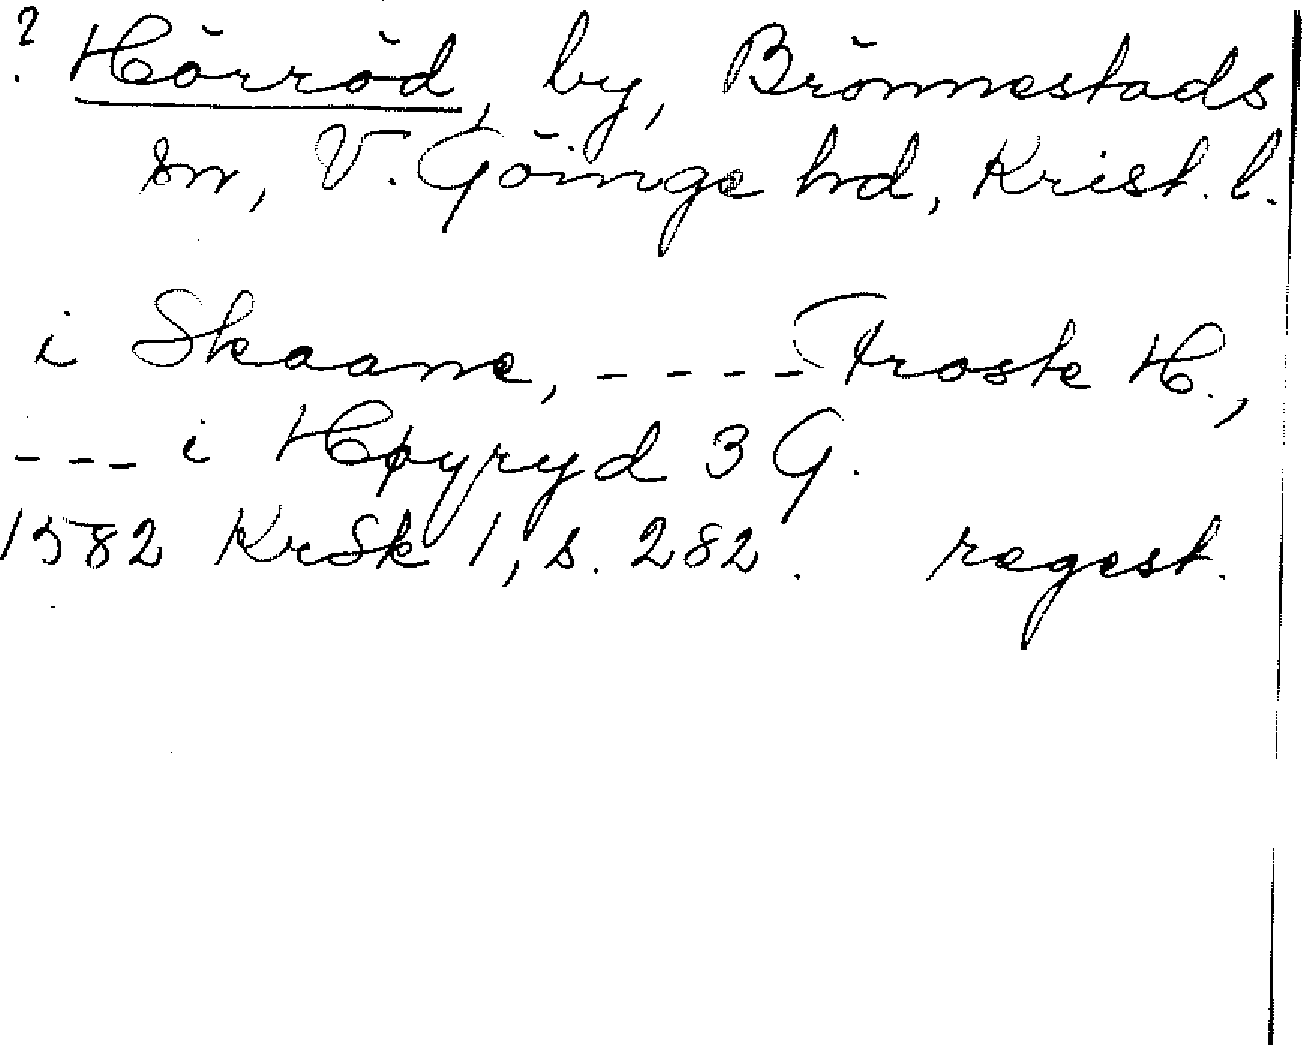 ? Hörröd, by, Brönnestads
sn, V. Göinge hd, Krist. l.
i Skaane, ---- Froste H.,
--- i Høyryd 3 G.
1582 KrSk 1, s. 282. regest.